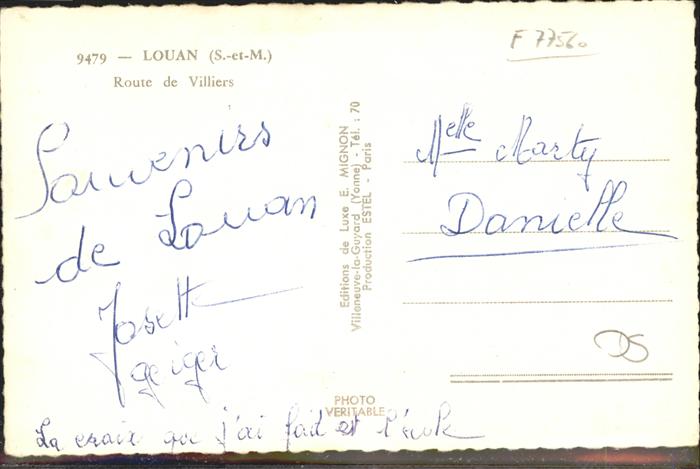 9479 — LOUAN (S.-et-M.)
Route de Villiers
F 77560
Souvenirs
de Louan
Josette
geiger
La croix que j'ai fait est l'école
Editions de Luxe E. MIGNON
Villeneuve-la-Guyard (Yonne) - Tél. : 70
Production ESTEL - Paris
PHOTO
VERITABLE
Melle Marty
Danielle
DS